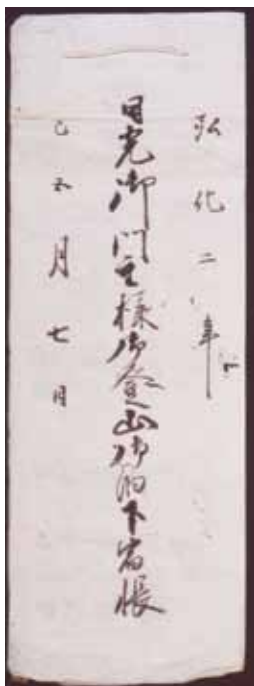 弘化二年
日光御門主様御登山御泊下宿帳
月七日